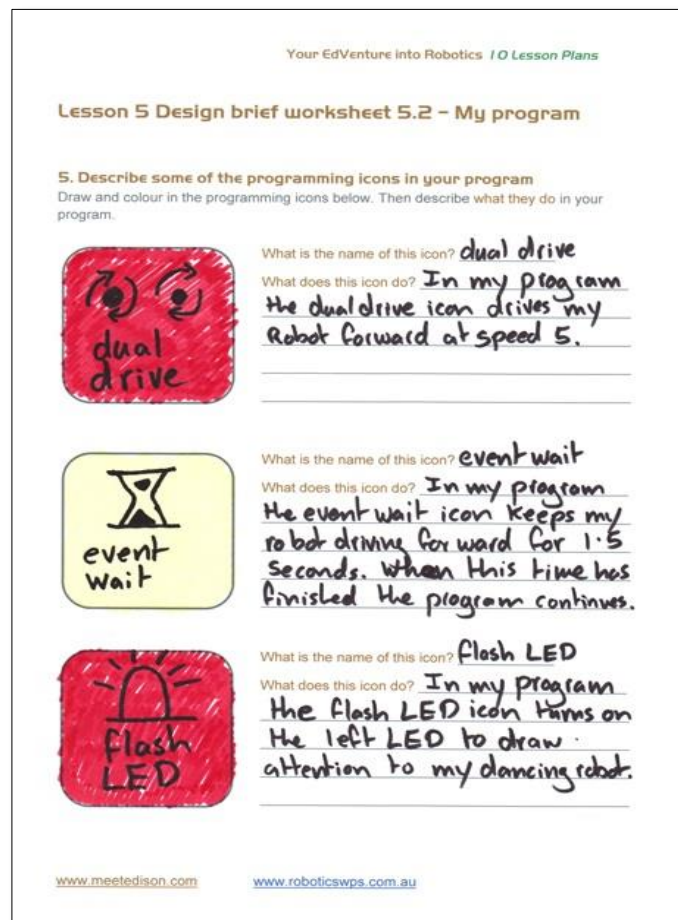 Your EdVenture into Robotics 10 Lesson Plans
Lesson 5 Design brief worksheet 5.2 – My program
5. Describe some of the programming icons in your program
Draw and colour in the programming icons below. Then describe what they do in your
program.
dual
drive
What is the name of this icon? dual drive
What does this icon do? In my program
the dual drive icon drives my
Robot forward at speed 5.
event
wait
What is the name of this icon? event wait
What does this icon do? In my program
the event wait icon keeps my
robot driving forward for 1.5
seconds. When this time has
finished the program continues.
flash
LED
What is the name of this icon? flash LED
What does this icon do? In my program
the flash LED icon turns on
the left LED to draw
attention to my dancing robot.
www.meetedison.com www.roboticswps.com.au